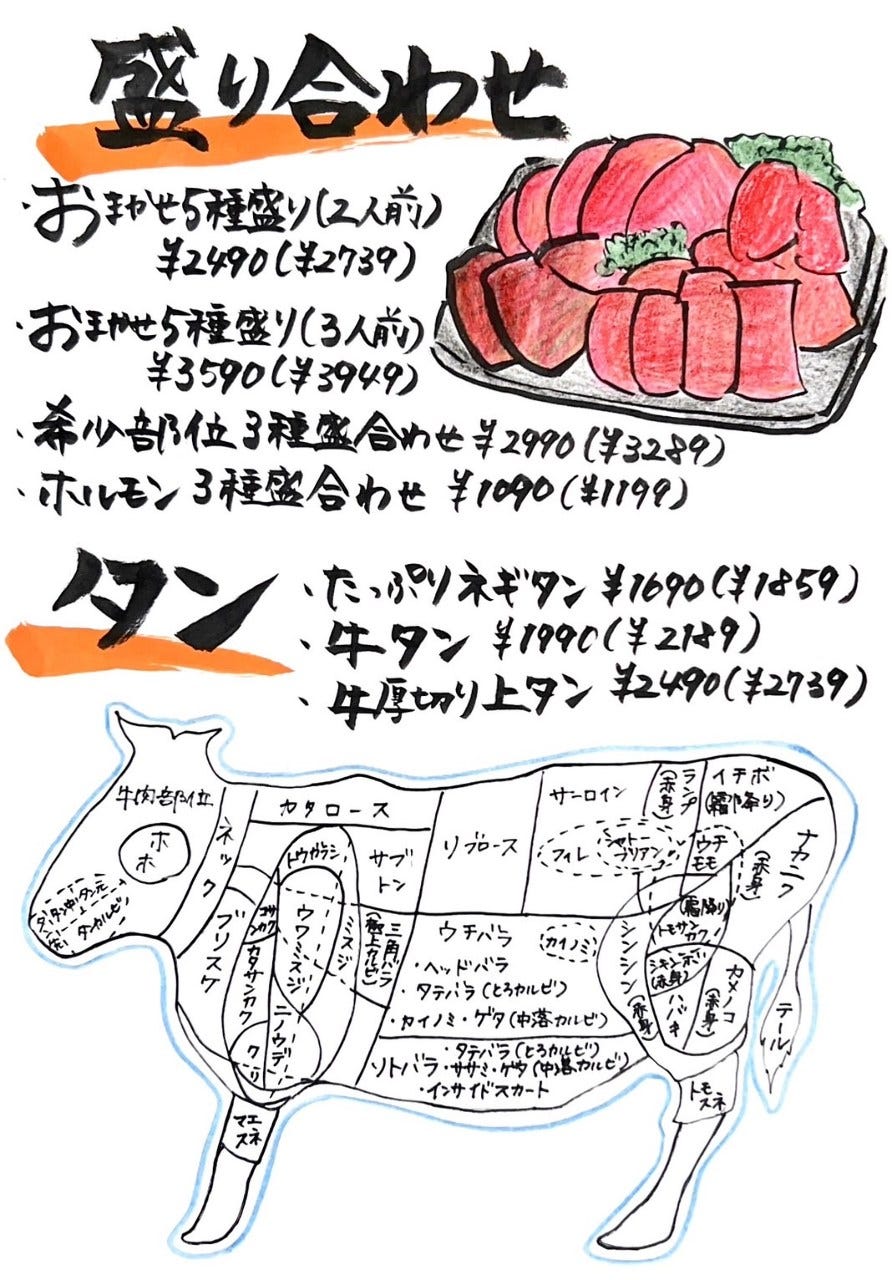 盛り合わせ
・おまかせ5種盛り(2人前)
¥2490(¥2739)
・おまかせ5種盛り(3人前)
¥3590(¥3949)
・希少部位3種盛合わせ ¥2990(¥3289)
・ホルモン3種盛合わせ ¥1090(¥1199)
タン
・たっぷりネギタン ¥1690(¥1859)
・牛タン ¥1990(¥2189)
・牛厚切り上タン ¥2490(¥2739)
牛肉部位
ホホ
タン中
タン元
タンカルビ
ネック
カタロース
トウガラシ
サブトン
リブロース
サーロイン
フィレ
シャトーブリアン
ランプ
(赤身)
イチボ
(霜降り)
ウチモモ
(赤身)
ナカニク
ブリスケ
コサンカク
カタサンカク
ウワミスジ
ミスジ
ニノウデ
クリ
三角バラ
(極上カルビ)
ウチバラ
カイノミ
・ヘッドバラ
・タテバラ(とろカルビ)
・カイノミ・ゲタ(中落カルビ)
ソトバラ
・タテバラ(とろカルビ)
・ササミ・ゲタ(中落カルビ)
・インサイドスカート
シンシン
(赤身)
(霜降り)
トモサンカク
シキンボ
(赤身)
ハバキ
カメノコ
(赤身)
テール
トモスネ
マエスネ